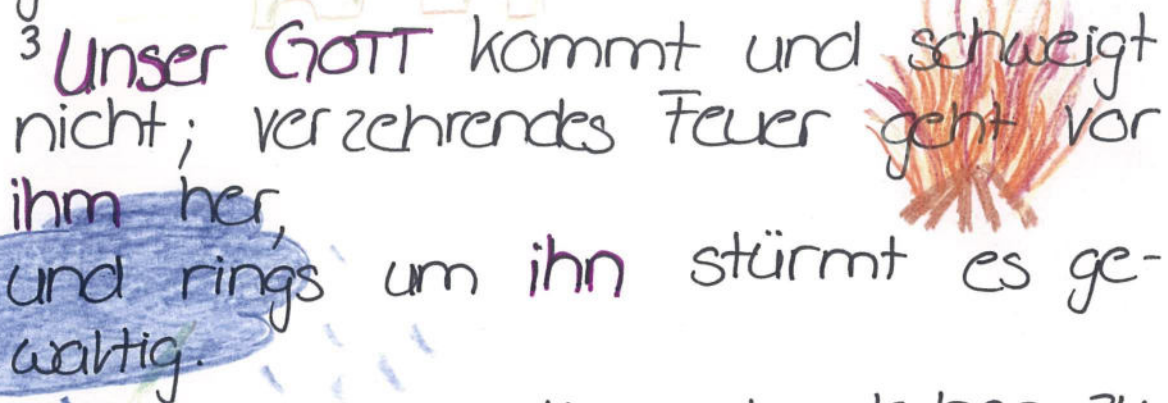 3 Unser GOTT kommt und schweigt
nicht; verzehrendes Feuer geht vor
ihm her,
und rings um ihn stürmt es ge-
waltig.